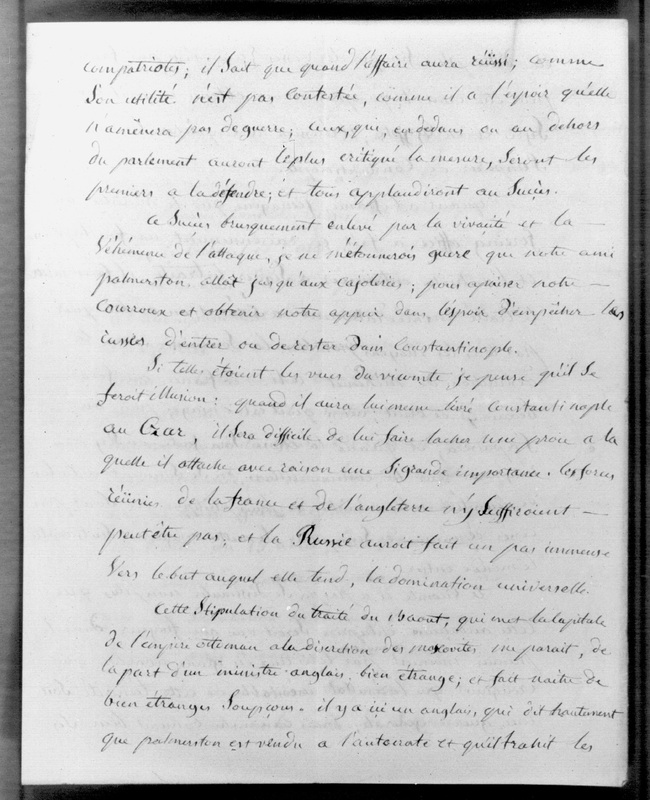 compatriotes; il sait que quand l'affaire aura réüssi; comme
son utilité n'est pas contestée, comme il a l'espoir qu'elle
n'amènera pas de guerre; ceux, qui, en dedans ou au dehors
du parlement auront le plus critiqué la mesure, seront les
premiers a la défendre; et tous applaudiront au Succès.
Ce Succès brusquement enlevé par la vivacité et la
véhémence de l'attaque, je ne m'étonnerois guere que notre ami
palmerston allât jusqu'aux cajoleries; pour apaiser notre
courroux et obtenir notre appui dans l'espoir d'empêcher les
russes d'entrer ou de rester dans Constantinople.
Si telles étoient les vues du vicomte je pense qu'il se
feroit illusion: quand il aura lui même livré constantinople
au Czar, il sera difficile de lui faire lacher une proie a la
quelle il attache avec raison une si grande importance. les forces
réünies de la france et de l'angleterre n'y suffiroient
peut être pas; et la Russie auroit fait un pas immense
vers le but auquel elle tend, la domination universelle.
Cette Stipulation du traité du aout, qui met la capitale
de l'empire ottoman a la discretion des moscovites me parait, de
la part d'un ministre anglais, bien etrange; et fait naitre de
bien etranges soupcons. il y a ici un anglais, qui dit hautement
que palmerston est vendu a l'autocrate et qu'il trahit les